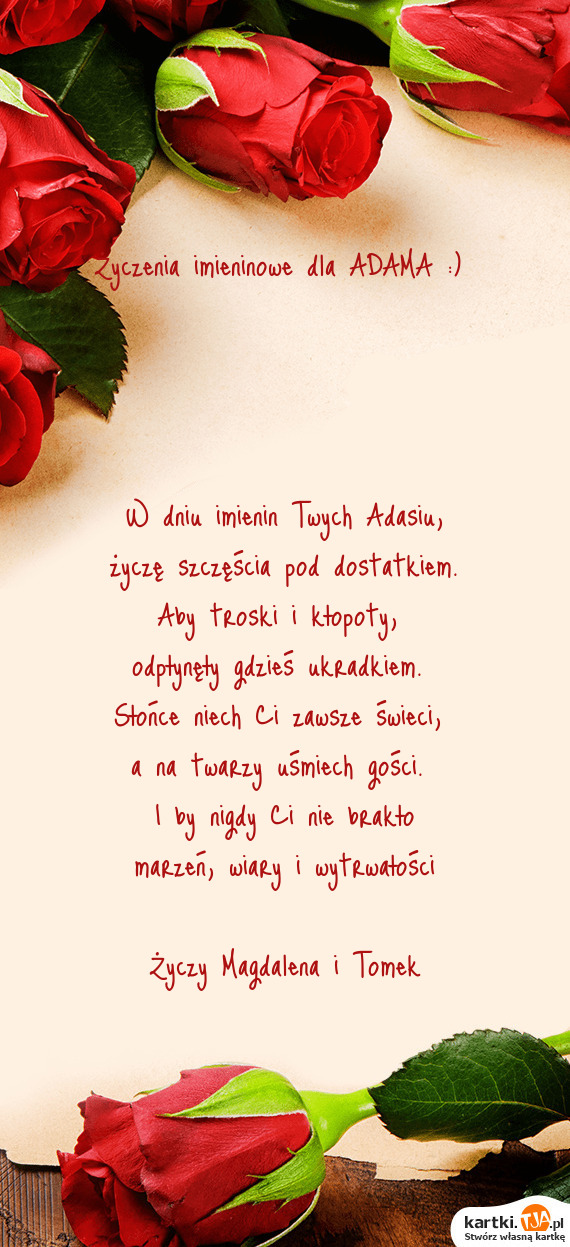 Życzenia imieninowe dla ADAMA :)
W dniu imienin Twych Adasiu,
życzę szczęścia pod dostatkiem.
Aby troski i kłopoty,
odpłynęły gdzieś ukradkiem.
Słońce niech Ci zawsze świeci,
a na twarzy uśmiech gości.
I by nigdy Ci nie brakło
marzeń, wiary i wytrwałości
Życzy Magdalena i Tomek
kartki.TJA.pl
Stwórz własną kartkę